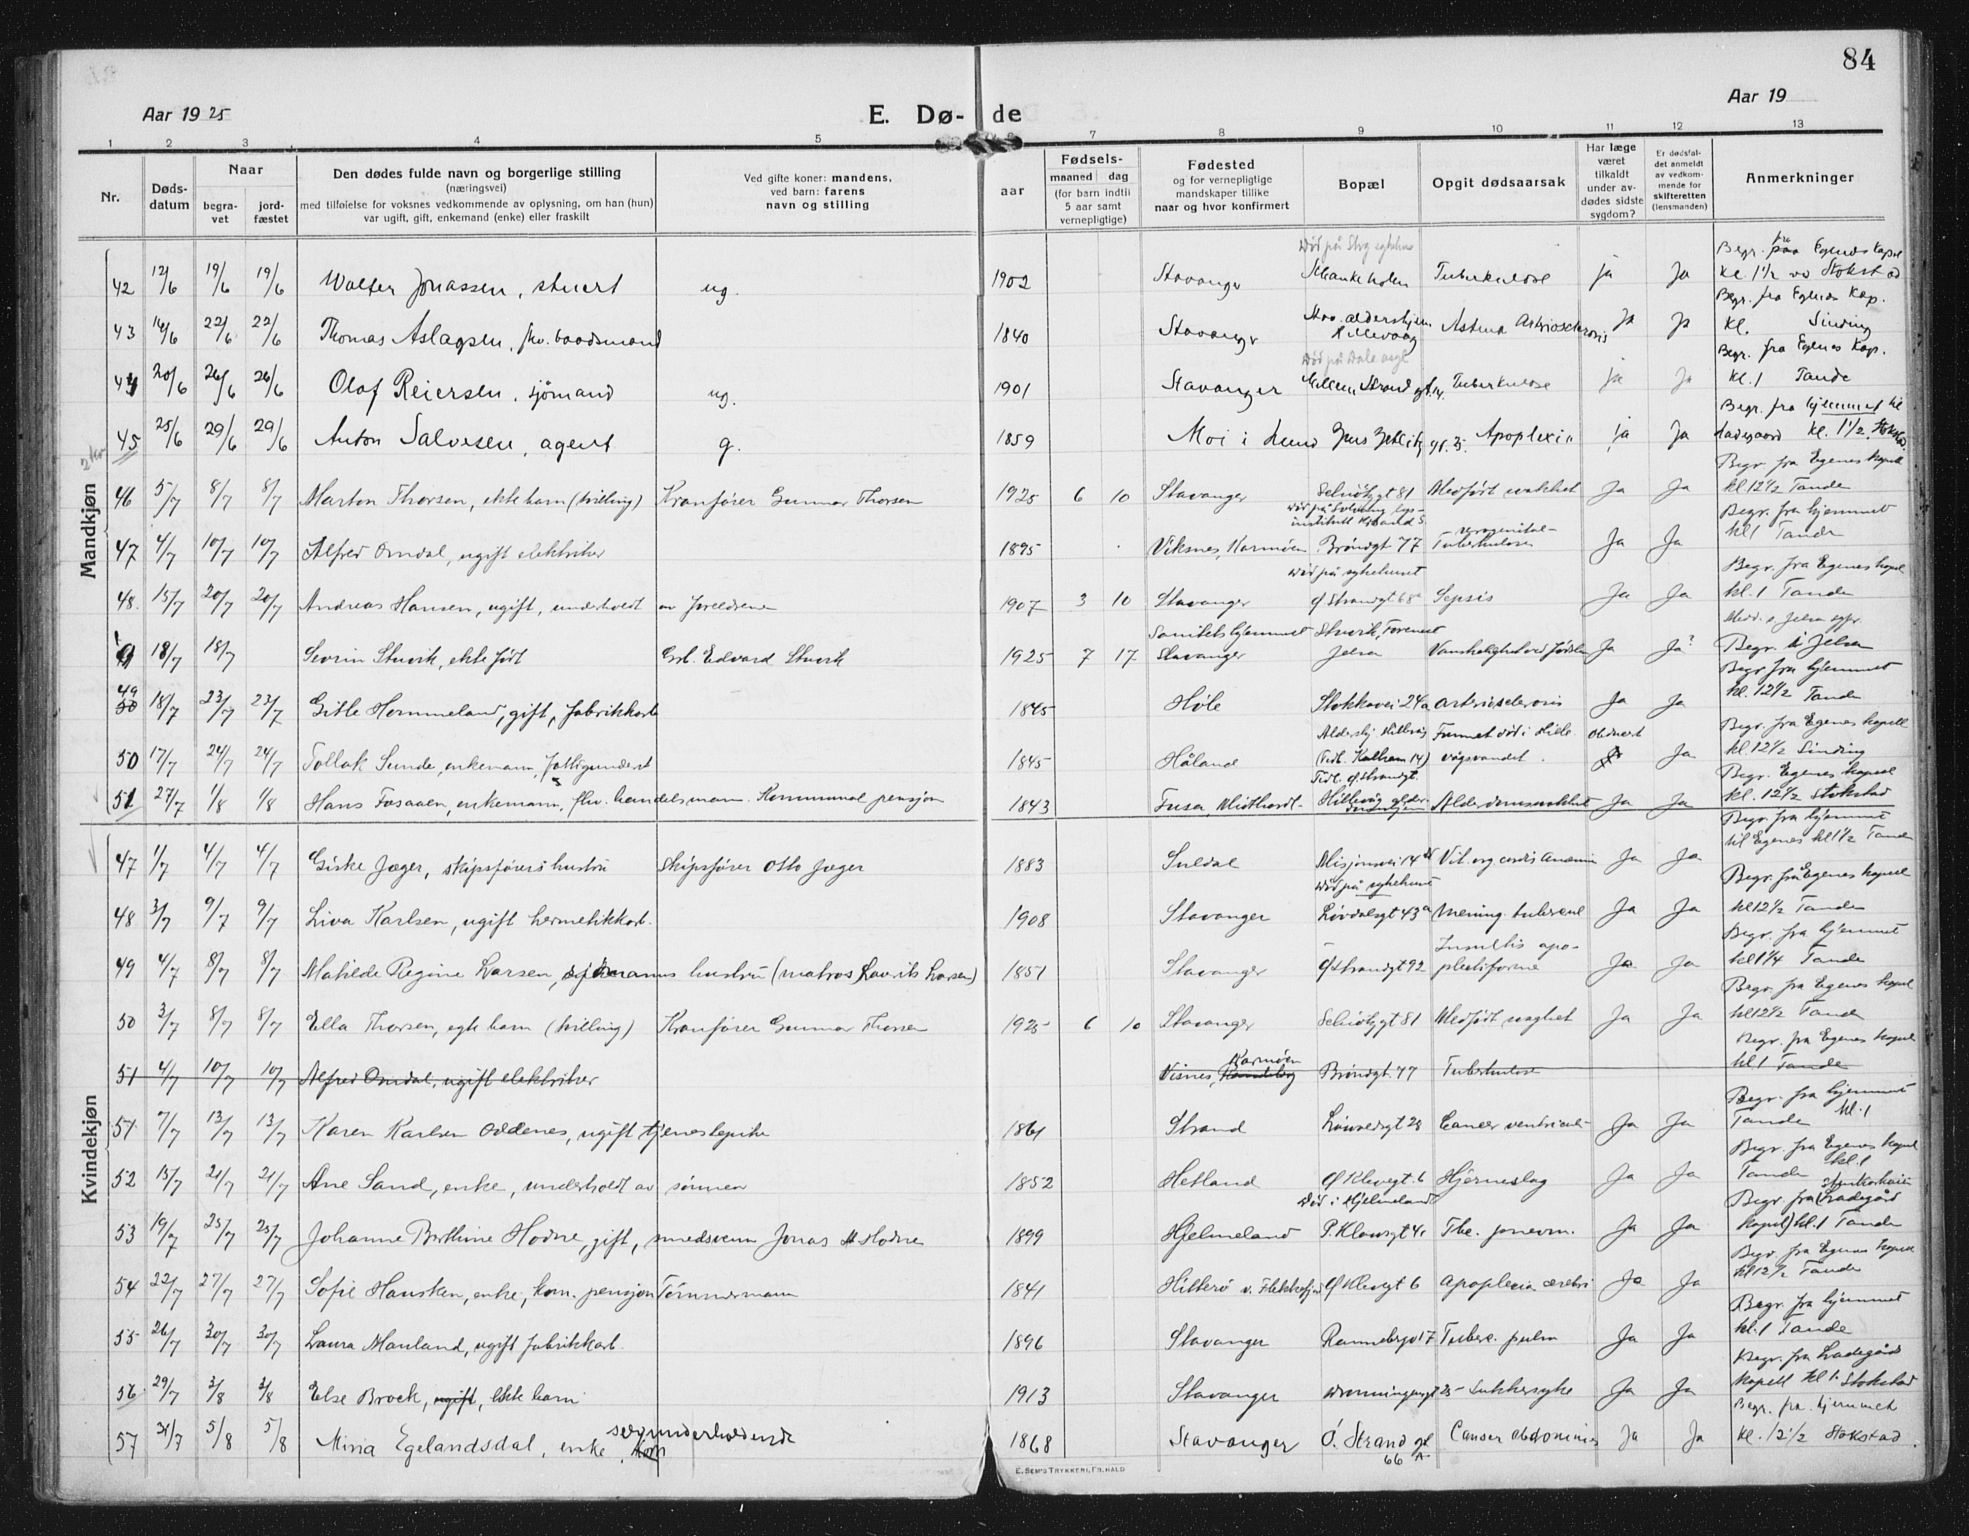 84
Aar 1925
E. Dø-de
Aar 19
1 2 3 4 5 6 7 8 9 10 11 12 13
Nr.
Døds-datum
Naar
begra-vet
jord-fæstet
Den dødes fulde navn og borgerlige stilling
(næringsvei)
med tilføielse for voksnes vedkommende av oplysning, om han (hun)
var ugift, gift, enkemand (enke) eller fraskilt
Ved gifte koner: mandens,
ved barn: farens
navn og stilling
aar
Fødsels-
maaned dag
(for barn indtil
5 aar samt
vernepligtige)
Fødested
og for vernepligtige
mandskaper tillike
naar og hvor konfirmert
Bopæl
Opgit dødsaarsak
Har læge
været
tilkaldt
under av-
dødes sidste
sygdom?
Er dødsfal-
det anmeldt
av vedkom-
mende for
skifteretten
(lensmanden)
Anmerkninger
Mandkjøn
42 12/6 19/6 19/6 Walter Jonassen, stuert ug. 1902 Stavanger Tuberkulose ja Ja Begr. fra Egenes Kapel kl. 1½ Stokstad
43 22/6 22/6 Thomas Aslagsen, fhv. baadsmand 1840 Stavanger Hillevaag Astma Ja Ja Begr. fra Egenes Kap. kl. Sinding
44 20/6 26/6 26/6 Olaf Reiersen, sjømand ug. 1901 Stavanger Tuberkulose ja Ja Begr. fra Egenes Kap. kl. 1 Tande
45 25/6 29/6 29/6 Anton Salvesen, agent g. 1859 Moi i Lund Apoplexia ja Ja Begr. fra hjemmet til Ladegaard kl. 1½ Stokstad
46 5/7 8/7 8/7 Marton Thorsen, ekte barn (tvilling) Kranfører Gunnar Thorsen 1925 6 10 Stavanger Medført svakhet Ja Ja Begr. fra Egenes kapell kl 12½ Tande
47 4/7 10/7 10/7 Alfred Omdal, ugift elektriker 1895 Viksnes, Karmøen Brøndgt 77 urogenital-Tuberkulose Ja Ja Begr. fra hjemmet kl 1 Tande
48. 15/7 20/7 20/7 Andreas Hansen, ugift, underholdt av foreldrene 1907 3 10 Stavanger Død på sykehuset Ø Strandgt 68a Sepsis Ja Ja Begr. fra Egenes kapel kl. 1 Tande
18/7 18/7 Sevrin Stuvik, ekte født Grb. Edvard Stuvik 1925 7 17 Sanitetshjemmet Stavanger Stuvik, Jelsa Ja Ja? Begr. i Jelsa
49 18/7 23/7 23/7 Gitle Hommeland, gift, fabrikkarb 1845 Høle Stokkavei 24a Arteriosclerosis Ja Ja Begr. fra hjemmet kl. 12½ Tande
50 17/7 24/7 24/7 Tollak Sunde, enkemann, fattigunderst 1845 Håland Funnet død i Hillevågsvandet obdusert Ja Begr. fra Egenes kapell kl. 12½ Sinding
51 27/7 1/8 1/8 Hans Fosaaen, enkemann, fhv. handelsmann. Kommunal pensjon 1843 Fusa, Alderdomssvakhet Ja Ja Begr. Egenes kapel kl. 12½ Stokstad
Kvindekjøn
47 1/7 4/7 4/7 Giske Jæger, skipsførers hustru Skipsfører Otto Jæger 1883 Suldal Misjonsvei 14 Vit. org cordis Anæmi Ja Ja Begr. fra hjemmet til Egenes kl 1½ Tande
48 3/7 9/7 9/7 Liva Karlsen, ugift hermetikkarb. 1908 Stavanger Død på sykehuset Løvdalsgt 43a Mening. tubercul Ja Ja Begr. frå Egenes kapel kl 12½ Tande
49 4/7 8/7 8/7 Matilde Regine Larsen, sjømanns hustru (matros Lavrits Larsen) 1851 Stavanger Ø Strandgt 92 Insultis apo-plectiforme Ja Ja Begr. fra hjemmet kl 1¼ Tande
50 3/7 8/7 8/7 Ella Thorsen, egte barn (tvilling) Kranfører Gunnar Thorsen 1925 6 10 Stavanger Medført svaghet Ja Ja Begr. fra Egenes kapel kl 12½ Tande
51 4/7 10/7 10/7 Alfred Omdal, ugift elektriker Visnes, Karmøen Brøndgt. 77 Tuberkulose Begr. fra Egenes kapel kl 1 Tande
51 7/7 13/7 13/7 Karen Karlsen Oddenes, ugift tjenestepike 1861 Strand Cancer ventricul- Ja Ja Begr. fra hjemmet kl. 1 Tande
52 15/7 21/7 21/7 Ane Sand, enke, underholdt av sønnen 1852 Hetland Ø Klevegt. 6 Hjerneslag Ja Ja Begr. fra Egenes kapel kl. 1 Tande
53 19/7 25/7 25/7 Johanne Bertine Hodne, gift, smedsvenn Jonas Hodne 1899 Hjelmeland Død i Hjelmeland P. Klowsgt 4 Tbc. pneum. Ja Ja Begr. fra Ladegård kapel kl. 1 Tande
54 22/7 27/7 27/7 Sofie Hansken, enke, kom. pensjon Tømmermann 1841 Hitterø v. Flekkefjord Ø Klevegt 6 Apoplexia cerebri Ja Ja Begr. fra Egenes kapel kl 12½ Tande
55 26/7 30/7 30/7 Laura Mauland, ugift fabrikkarb. 1896 Stavanger 17 Tuberc. pulm Ja Ja Begr. fra hjemmet kl. 1 Tande
56 29/7 3/8 3/8 Else Brock, ugift, ekte barn 1913 Stavanger Dronningensgt 25 Sukkersyke Ja Ja Begr. fra Ladegård kapell kl 1. Stokstad
57 31/7 5/8 5/8 Mina Egelandsdal, enke, selvunderholdende 1868 Stavanger Ø. Strand gt 66 A Cancer abdominis Ja Ja Begr. fra hjemmet kl. 12½ Stokstad.
E. SEM'S TRYKKERI, FR.HALD